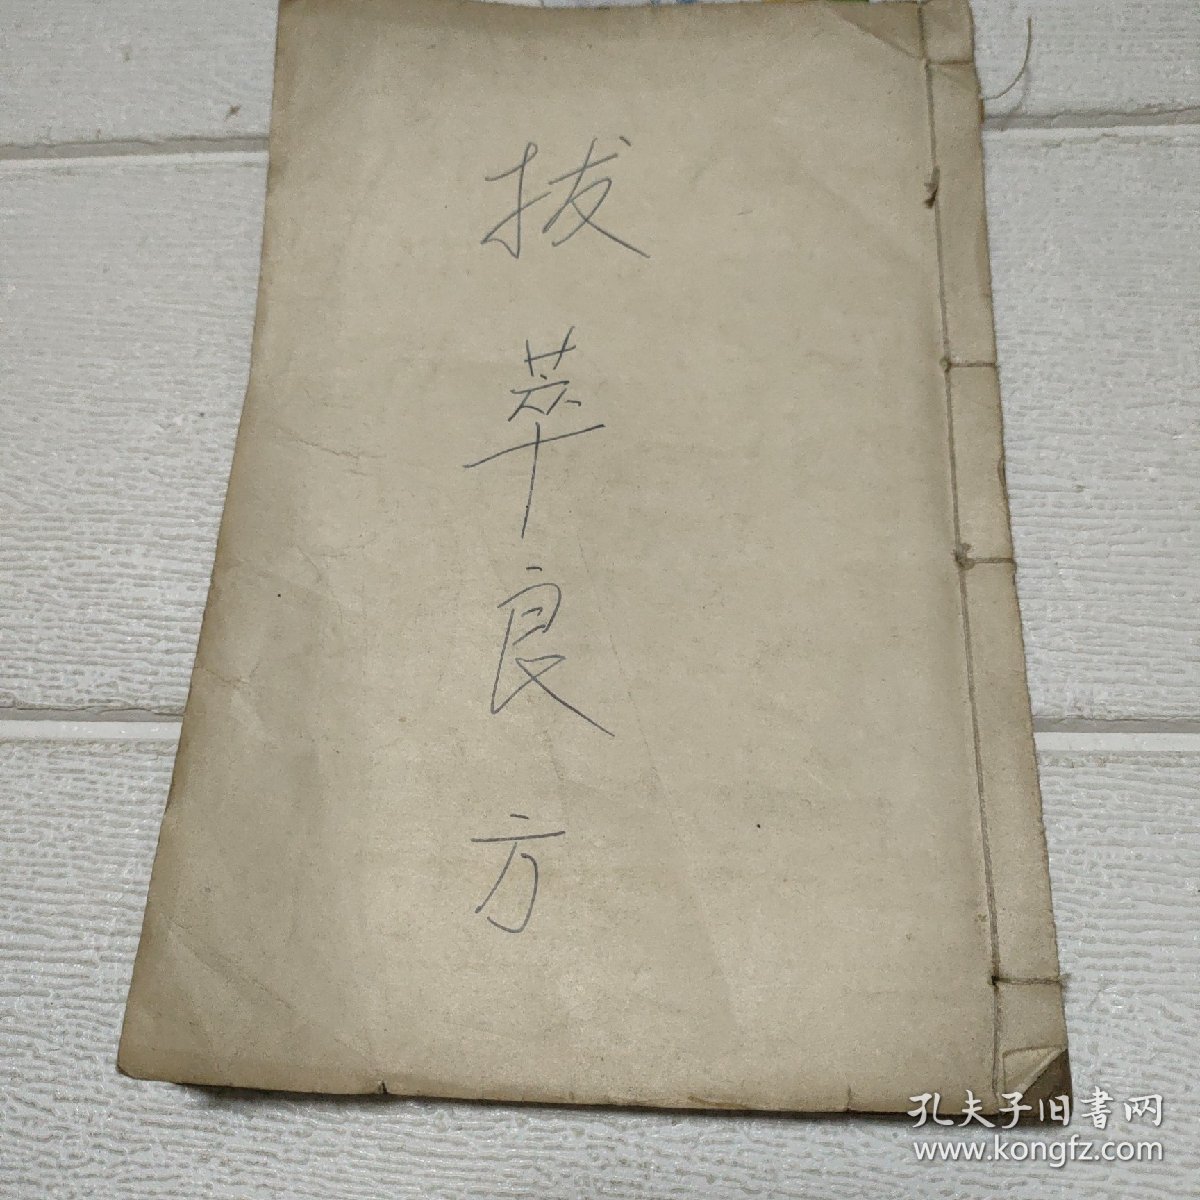 拔萃良方
孔夫子旧書网
www.kongfz.com